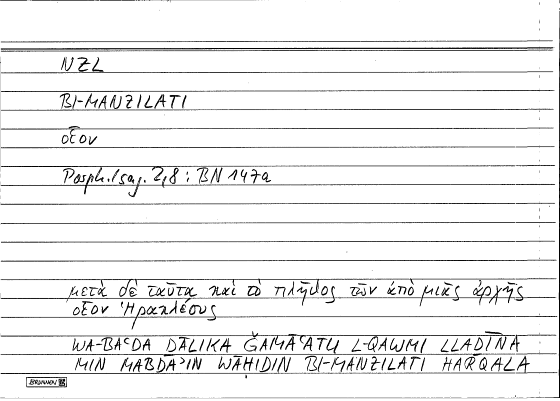 NZL
BI-MANZILATI
οἷον
Porph. Isag. 2,8 : BN 147a
μετὰ δὲ ταῦτα καὶ τὸ πλῆθος τῶν ἀπὸ μιᾶς ἀρχῆς
οἷον Ἡρακλέους
WA-BAʿDA ḎĀLIKA ǦAMĀʿATU L-QAWMI LLAḎĪNA
MIN MABDAʾIN WĀḤIDIN BI-MANZILATI HARQALA
BRUNNEN